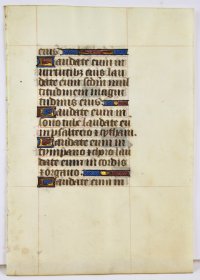 eius.
Laudate eum in
uirtutibus eius lau
date eum scdm mul
titudinem magni
tudinis eius.
Laudate eum in
sono tube laudate eum
in psalterio et cythara.
Laudate eum in
tympano et choro lau
date eum in cordis
et organo.
Laudate eum in